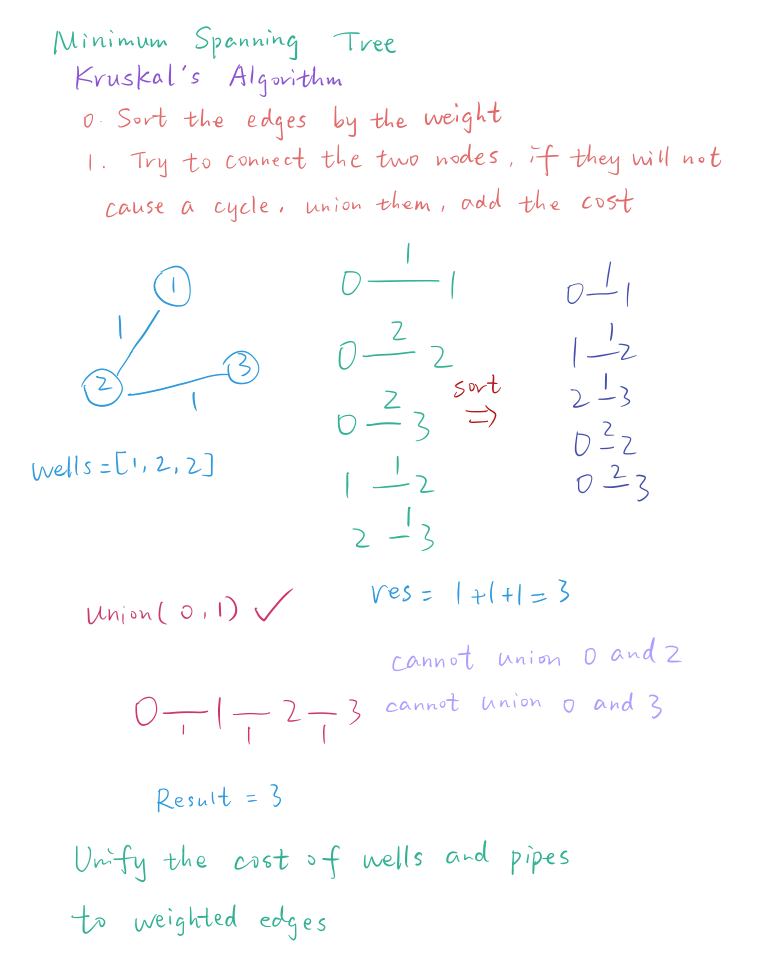 Minimum Spanning Tree
Kruskal's Algorithm
0. Sort the edges by the weight
1. Try to connect the two nodes, if they will not
cause a cycle, union them, add the cost
1
1
2
3
1
wells = [1, 2, 2]
1
0 — 1
2
0 — 2
2
0 — 3
1
1 — 2
1
2 — 3
sort
⇒
1
0 — 1
1
1 — 2
1
2 — 3
2
0 — 2
2
0 — 3
union(0, 1) ✓
res = 1+1+1 = 3
cannot union 0 and 2
cannot union 0 and 3
0 — 1 — 2 — 3
1 1 1
Result = 3
Unify the cost of wells and pipes
to weighted edges